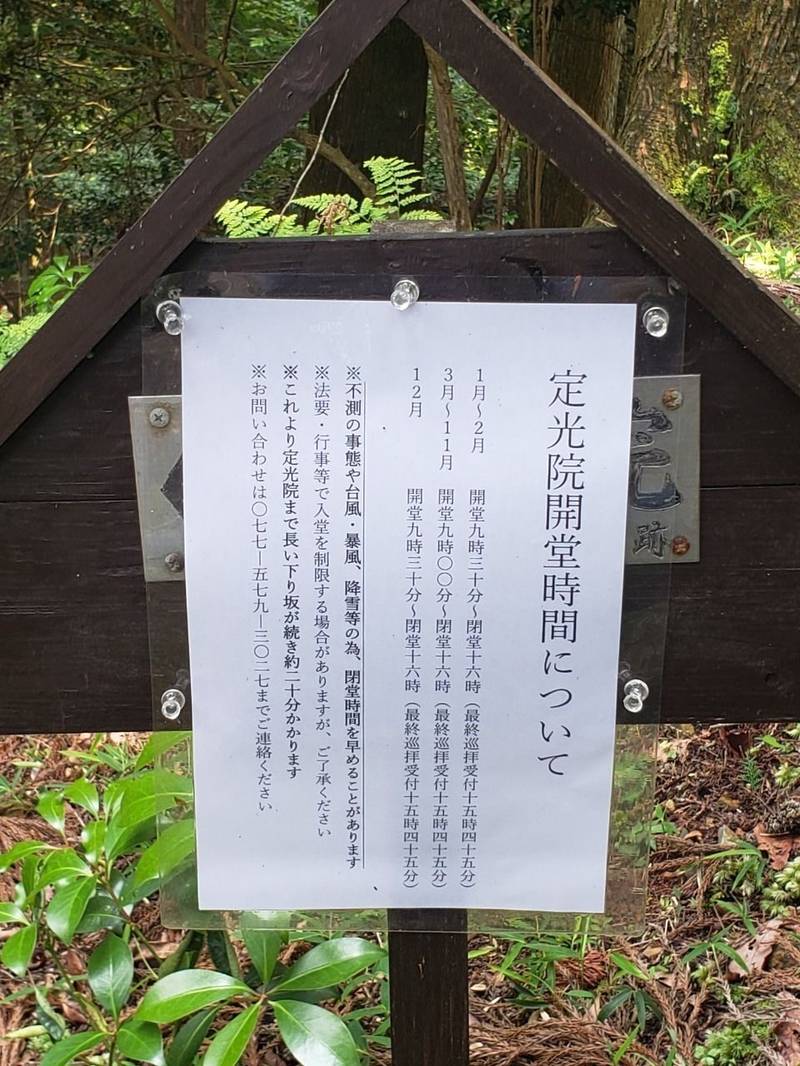 定光院開堂時間について
1月～2月　開堂九時三十分～閉堂十六時（最終巡拝受付十五時四十五分）
3月～11月　開堂九時〇〇分～閉堂十六時（最終巡拝受付十五時四十五分）
12月　開堂九時三十分～閉堂十六時（最終巡拝受付十五時四十五分）
※不測の事態や台風・暴風、降雪等の為、閉堂時間を早めることがあります
※法要・行事等で入堂を制限する場合がありますが、ご了承ください
※これより定光院まで長い下り坂が続き約二十分かかります
※お問い合わせは〇七七―五七九―三〇二七までご連絡ください
跡